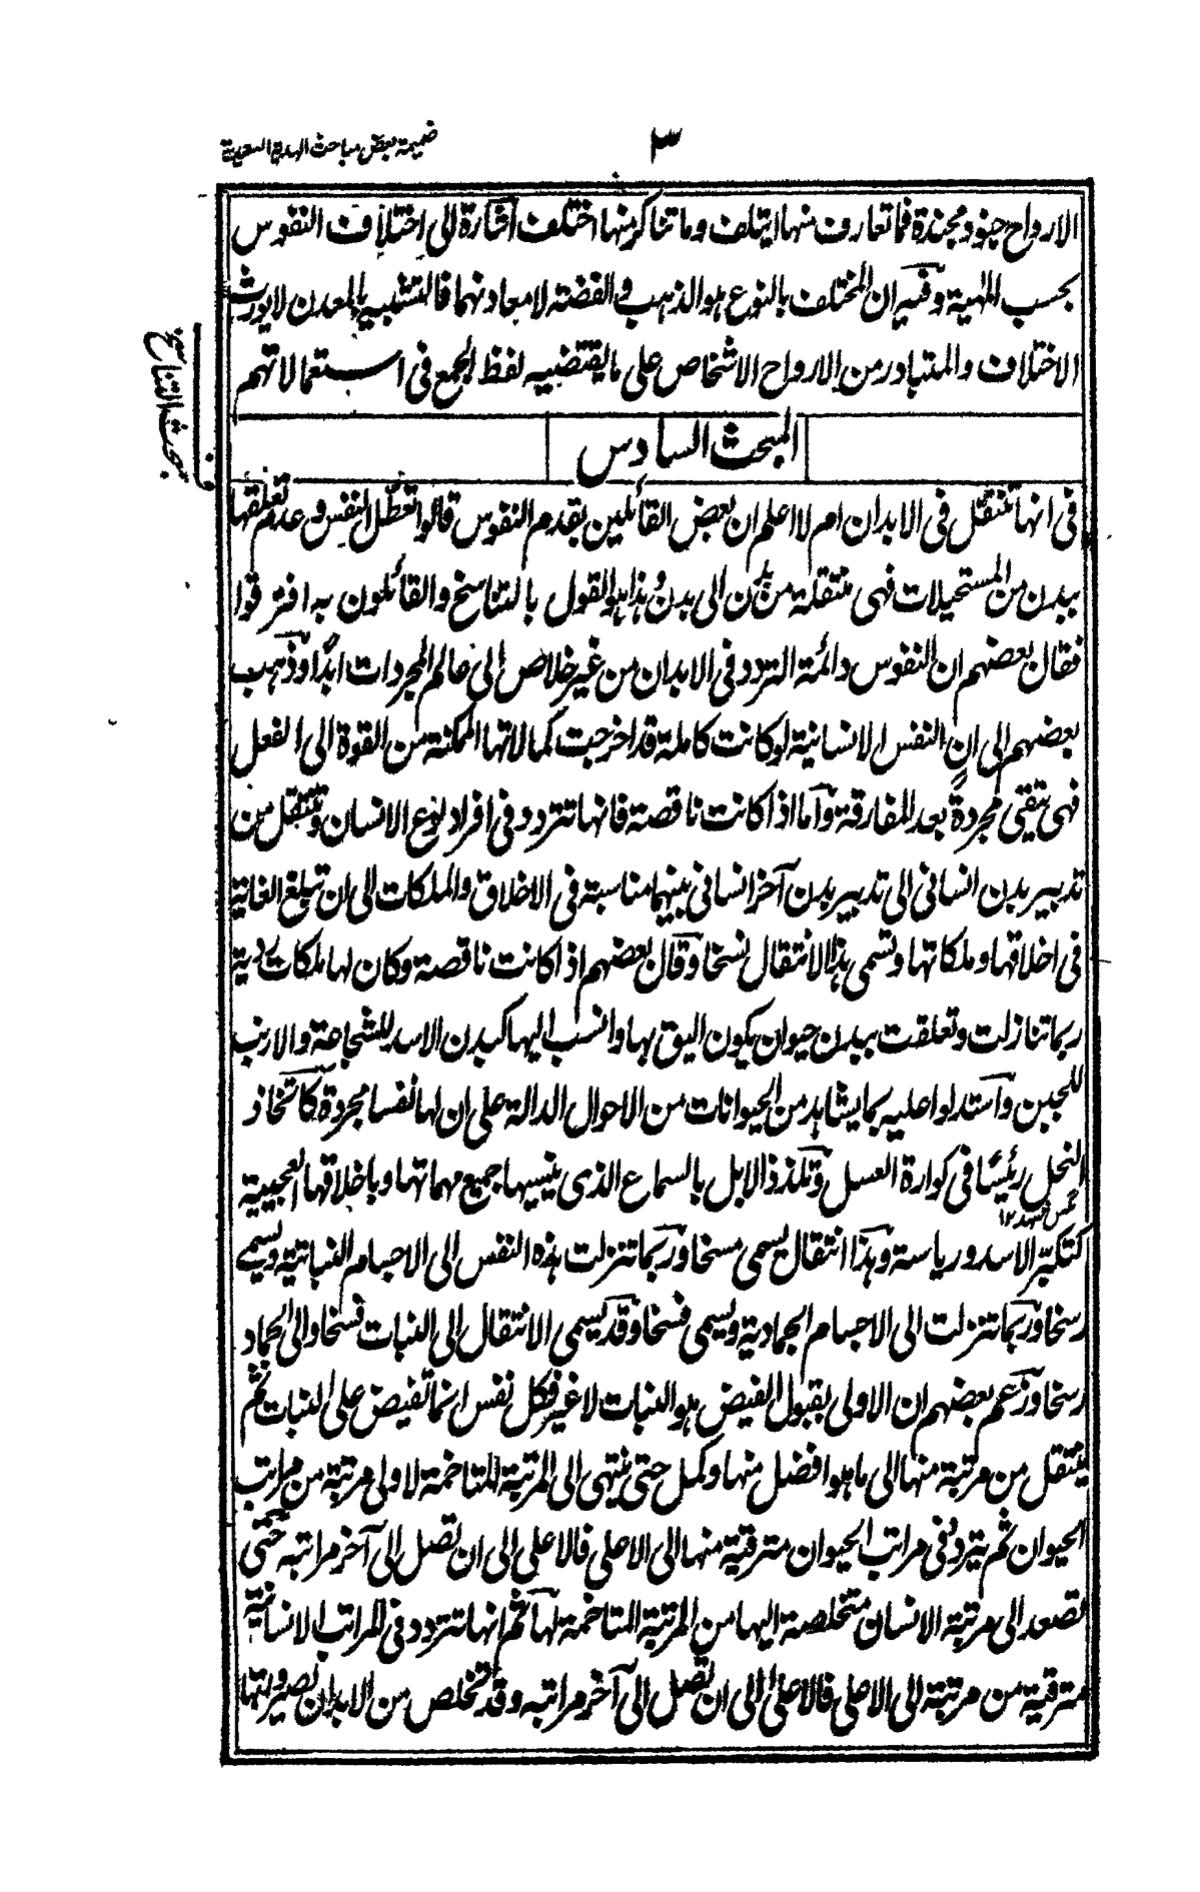 ضميمة بعض مباحث الهدية السعيدية
٣
الارواح جنود مجندة فما تعارف منها ايتلف وما تناكر منها اختلف اشارة الى اختلاف النفوس
بحسب الماهية وفيه ان المختلف بالنوع هو الذهب والفضة لا معادنهما فالتشبيه بالمعدن لا يورث
الاختلاف والمتبادر من الارواح الاشخاص على ما يقتضيه لفظ الجمع فى استعمالاتهم
مبحث التناسخ
المبحث السادس
فى انها تنتقل فى الابدان ام لا اعلم ان بعض القائلين بقدم النفوس قالوا تعطل النفس وعدم تعلقها
ببدن من المستحيلات فهى منتقلة من بدن الى بدن هذا هو القول بالتناسخ والقائلون به افترقوا
فقال بعضهم ان النفوس دائمة التردد فى الابدان من غير خلاص الى عالم المجردات ابدًا وذهب
بعضهم الى ان النفس الانسانية لو كانت كاملة قد اخرجت كمالاتها الممكنة من القوة الى الفعل
فهى تبقى مجردةً بعد المفارقة واما اذا كانت ناقصة فانها تتردد فى افراد نوع الانسان وتنتقل من
تدبير بدن انسانى الى تدبير بدن آخر انسانى بينهما مناسبة فى الاخلاق والملكات الى ان تبلغ الغاية
فى اخلاقها وملكاتها وتسمى هذا الانتقال نسخا وقال بعضهم اذا كانت ناقصة وكان لها ملكات ردية
ربما تنازلت وتعلقت ببدن حيوان يكون اليق بها وانسب اليها كبدن الاسد للشجاعة والارنب
للجبن واستدلوا عليه بما يشاهد من الحيوانات من الاحوال الدالة على ان لها نفسا مجردة كاتخاذ
النحل رئيسًا فى كوارة العسل وتلذذ الابل بالسماع الذى ينسيها جميع مهماتها وباخلاقها العجيبة
كتكبّر الاسد ورياسة وهذا انتقال يسمى مسخا وربما تنزلت هذه النفس الى الاجسام النباتية ويسمى
رسخا وربما تنزلت الى الاجسام الجمادية ويسمى فسخا وقد يسمى الانتقال الى النبات فسخا والى الجماد
رسخا وزعم بعضهم ان الاولى بقبول الفيض هو النبات لا غير فكل نفس انما تفيض على النبات ثم
ينتقل من مرتبة منها الى ما هو افضل منها وكمل حتى ينتهى الى المرتبة المتاخمة لاولى مرتبة من مراتب
الحيوان ثم يتردد فى مراتب الحيوان مترقية منها الى الاعلى فالاعلى الى ان تصل الى آخر مراتبه حتى
تصعد الى مرتبة الانسان متخلصة اليها من المرتبة المتاخمة لها ثم انها تتردد فى المراتب الانسانية
مترقية من مرتبة الى الاعلى فالاعلى الى ان تصل الى آخر مراتبه وقد تخلص من الابدان لصيرورتها